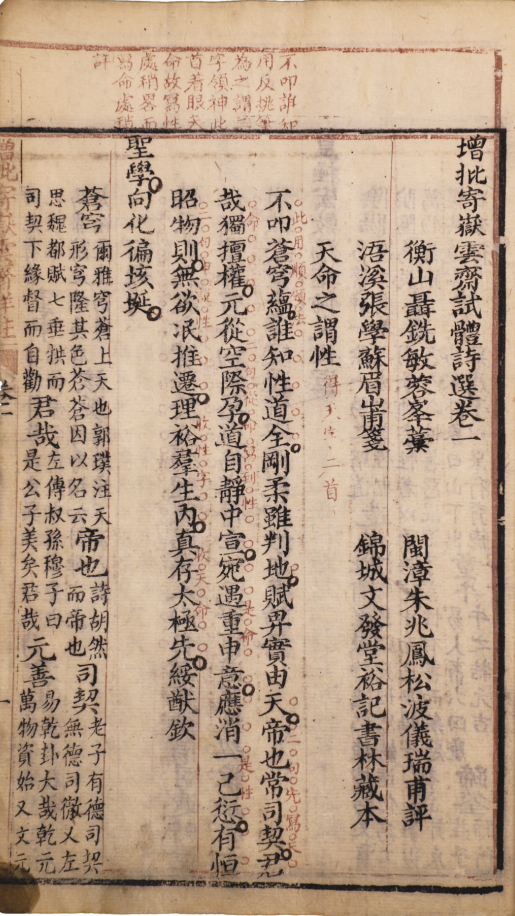 不叩誰知
用反挑筆
為之謂二
字領神此
首着眼天
命故寫性
處稍畧而
寫命處稍
詳
增批寄嶽雲齋試體詩選卷一
衡山聶銑敏蓉峯藁 閩漳朱兆鳳松波儀瑞甫評
浯溪張學蘇眉甫箋 錦城文發堂裕記書林藏本
天命之謂性 二首
不叩蒼穹蘊誰知性道全剛柔雖判地賦畀實由天帝也常司契君
哉獨擅權元從空際孕道自靜中宣宛遇重申意應消一己愆有恒
昭物則無欲泯推遷理裕羣生內真存太極先綏猷欽
聖學向化徧垓埏
蒼穹 爾雅穹蒼上天也郭璞注天形穹隆其色蒼蒼因以名云 帝也 詩胡然而帝也 司契 老子有德司契無德司徹又左
思魏都賦七垂拱而司契下緣督而自勸 君哉 左傳叔孫穆子曰是公子美矣君哉 元善 易乾卦大哉乾元萬物資始又文元
一